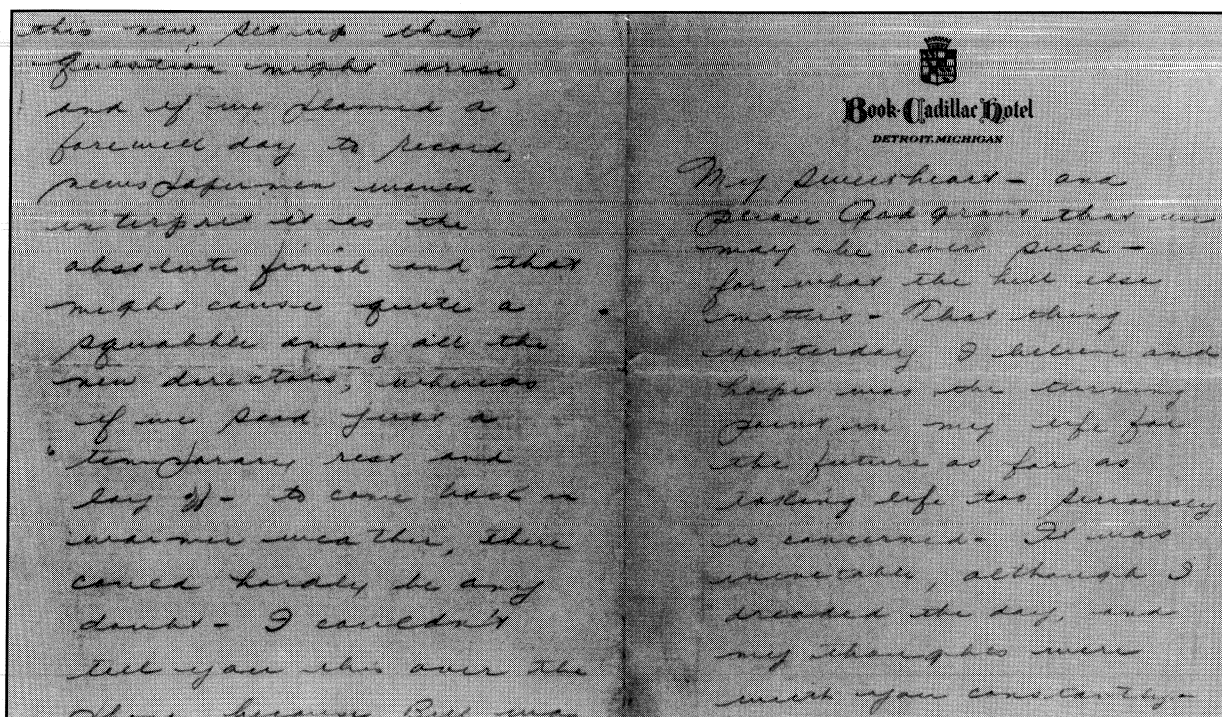 this new set up that
question might arise,
and if we planned a
farewell day to record,
newspapermen would
interpret it as the
absolute finish and that
might cause quite a
squabble among all the
new directors, whereas
if we said just a
temporary rest and
lay off - to come back in
warmer weather, there
could hardly be any
doubt - I couldn't
tell you this over the
phone because Bill was
Book-Cadillac Hotel
DETROIT, MICHIGAN
My sweetheart - and
please God grant that we
may be ever such -
for what the hell else
matters - That thing
yesterday I believe and
hope was the turning
point in my life for
the future as far as
taking life too seriously
is concerned - It was
inevitable, although I
dreaded the day, and
my thoughts were
with you constantly -